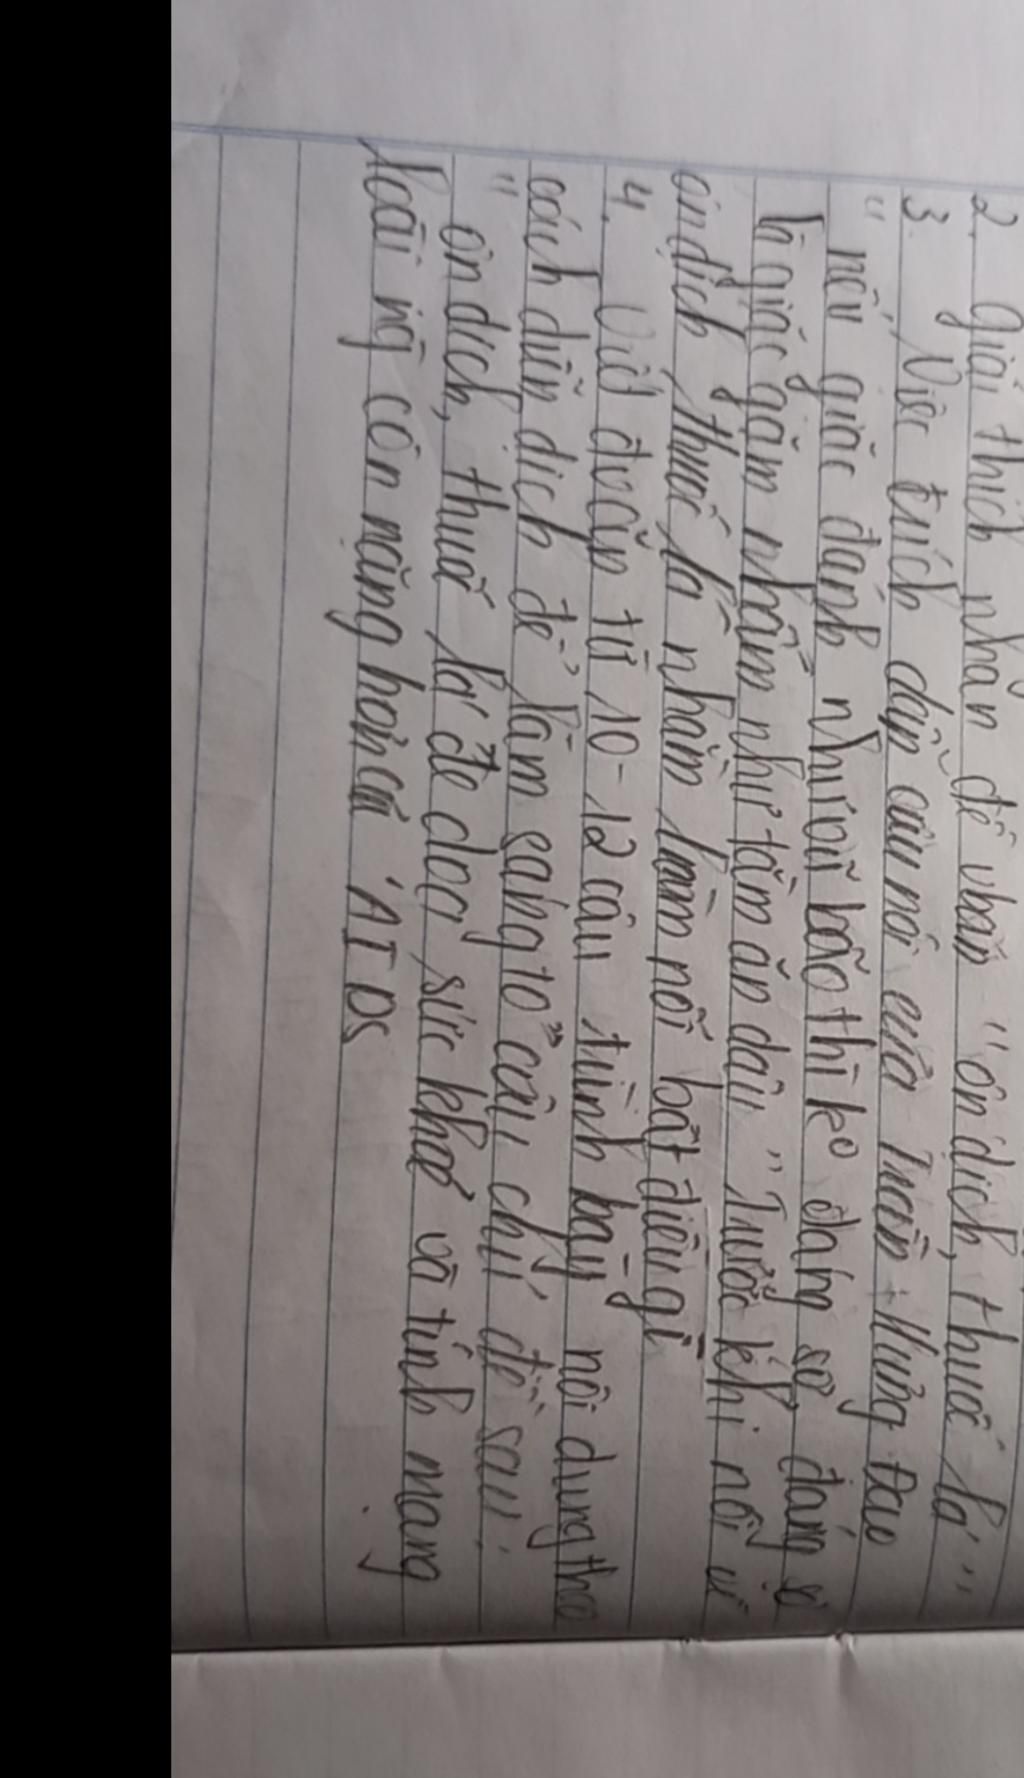 2. Giải thích nhan đề vbản "ôn dịch, thuốc lá"
3. Việc trích dẫn câu nói của Trần Hưng Đạo
" nếu giặc đánh như vũ bão thì ko đáng sợ, đáng sợ
là giặc gặm nhấm như tằm ăn dâu" Trước khi nói về
ôn dịch thuốc lá nhằm làm nổi bật điều gì
4. Viết đoạn từ 10-12 câu trình bày nội dung theo
cách diễn dịch để làm sáng tỏ câu chủ đề sau:
" ôn dịch, thuốc lá đe doạ sức khoẻ và tính mạng
loài ng còn nặng hơn cả AIDS